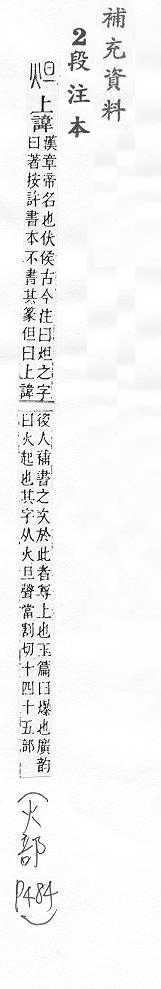 補充資料
2段注本
炟上諱
漢章帝名也伏侯古今注曰炟之字
曰著按許書本不書其篆但曰上諱
後人補書之次於此者尊上也玉篇曰爆也廣韵
曰火起也其字从火旦聲當割切十四十五部
(火部P484)